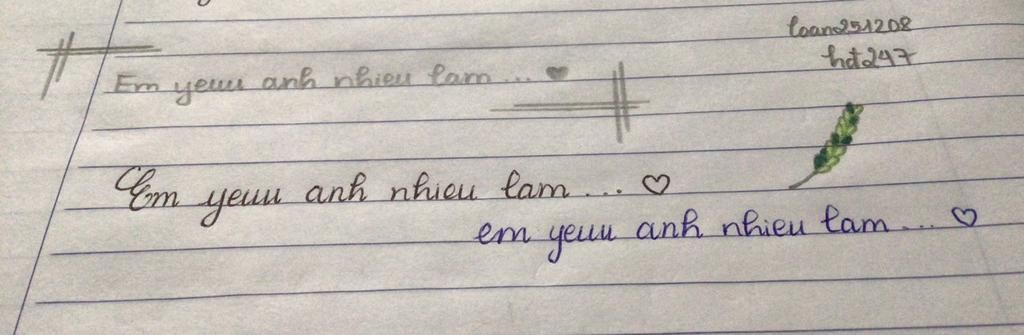 loan251208
hdt247
Em yeuu anh nhieu lam... ♥
Em yeuu anh nhieu lam... ♡
em yeuu anh nhieu lam... ♡